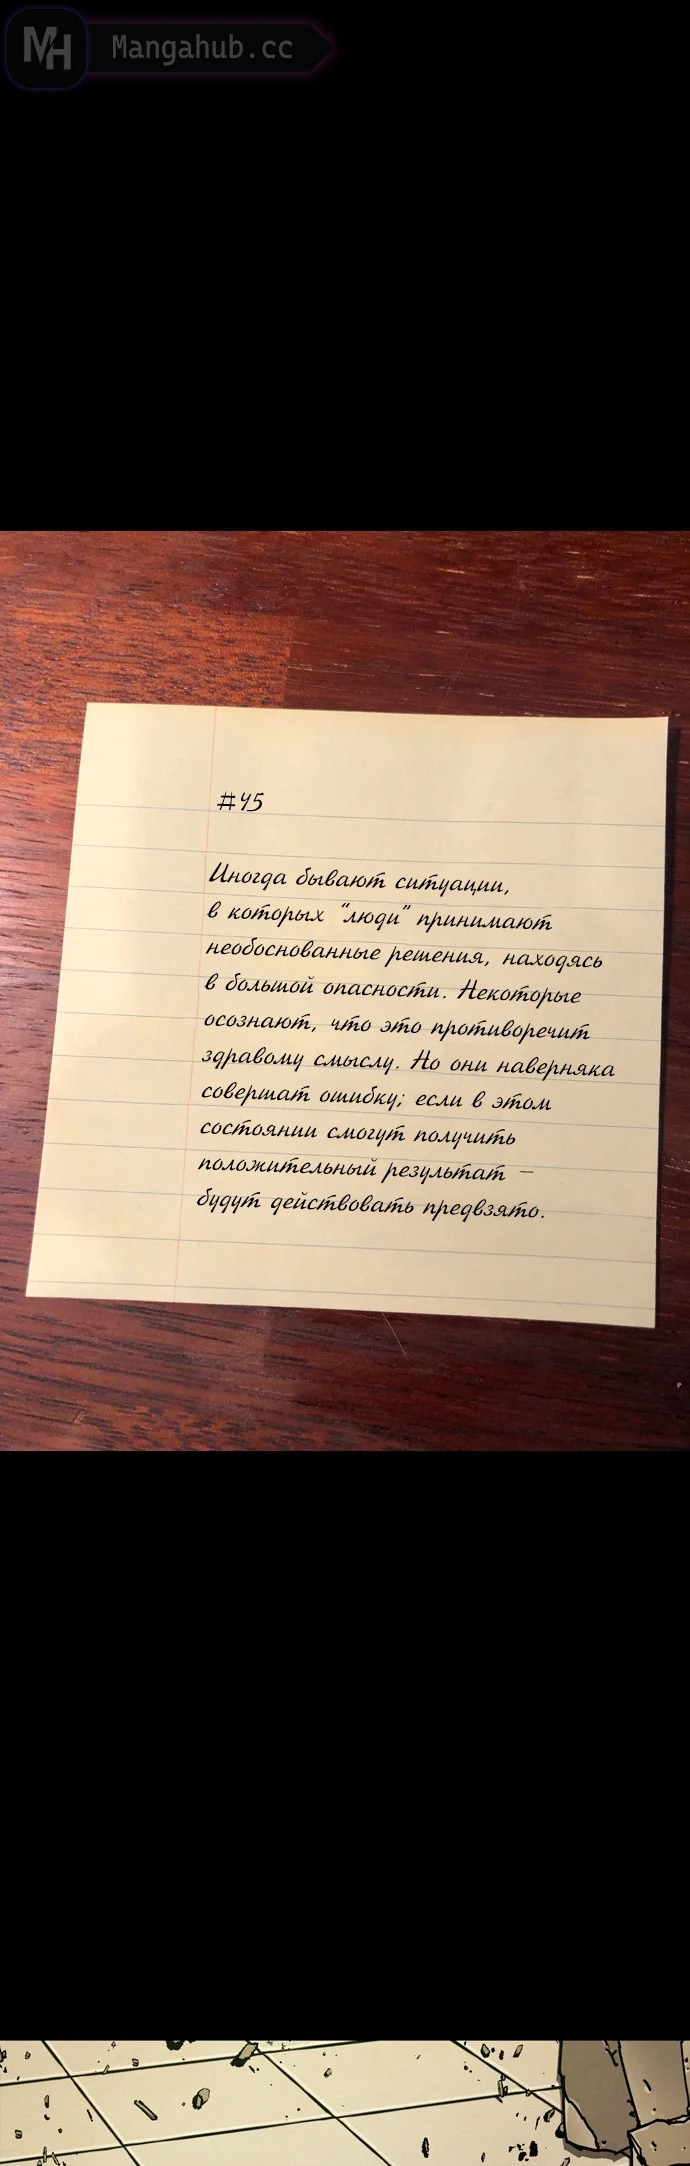 MH Mangahub.cc
#45
Иногда бывают ситуации,
в которых “люди” принимают
необоснованные решения, находясь
в большой опасности. Некоторые
осознают, что это противоречит
здравому смыслу. Но они наверняка
совершат ошибку; если в этом
состоянии смогут получить
положительный результат –
будут действовать предвзято.